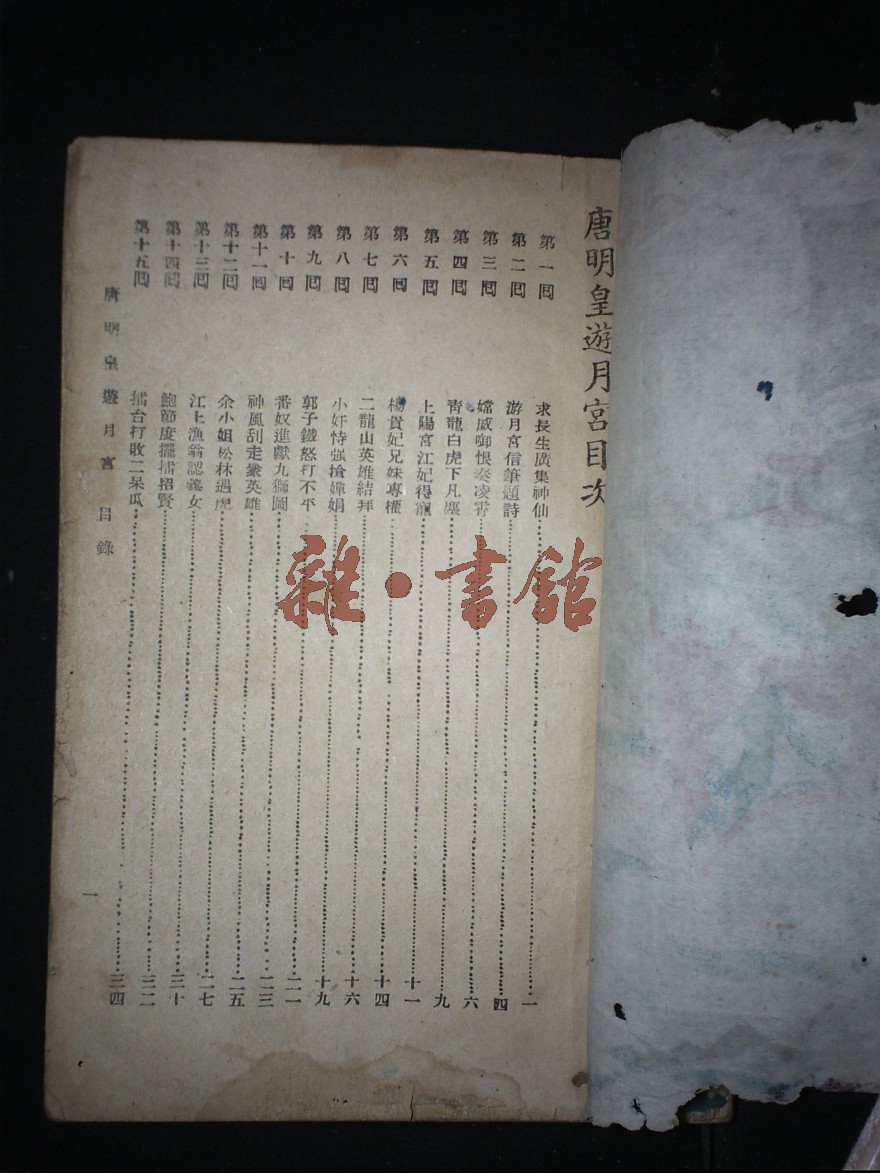 唐明皇遊月宮目次
第一回 求長生廣集神仙 一
第二回 游月宮信筆題詩 四
第三回 嫦娥啣恨奏凌霄 六
第四回 青龍白虎下凡塵 九
第五回 上陽宮江妃得寵 十一
第六回 楊貴妃兄妹專權 十四
第七回 二龍山英雄結拜 十六
第八回 小奸恃强搶嬋娟 十九
第九回 郭子鐵怒打不平 二一
第十回 番奴進獻九獅圖 二三
第十一回 神風刮走衆英雄 二五
第十二回 余小姐松林遇虎 二七
第十三回 江上漁翁認義女 三十
第十四回 鮑節度擺擂招賢 三二
第十五回 擂台打敗二呆瓜 三四
唐明皇遊月宮 目錄
一
雜·書館